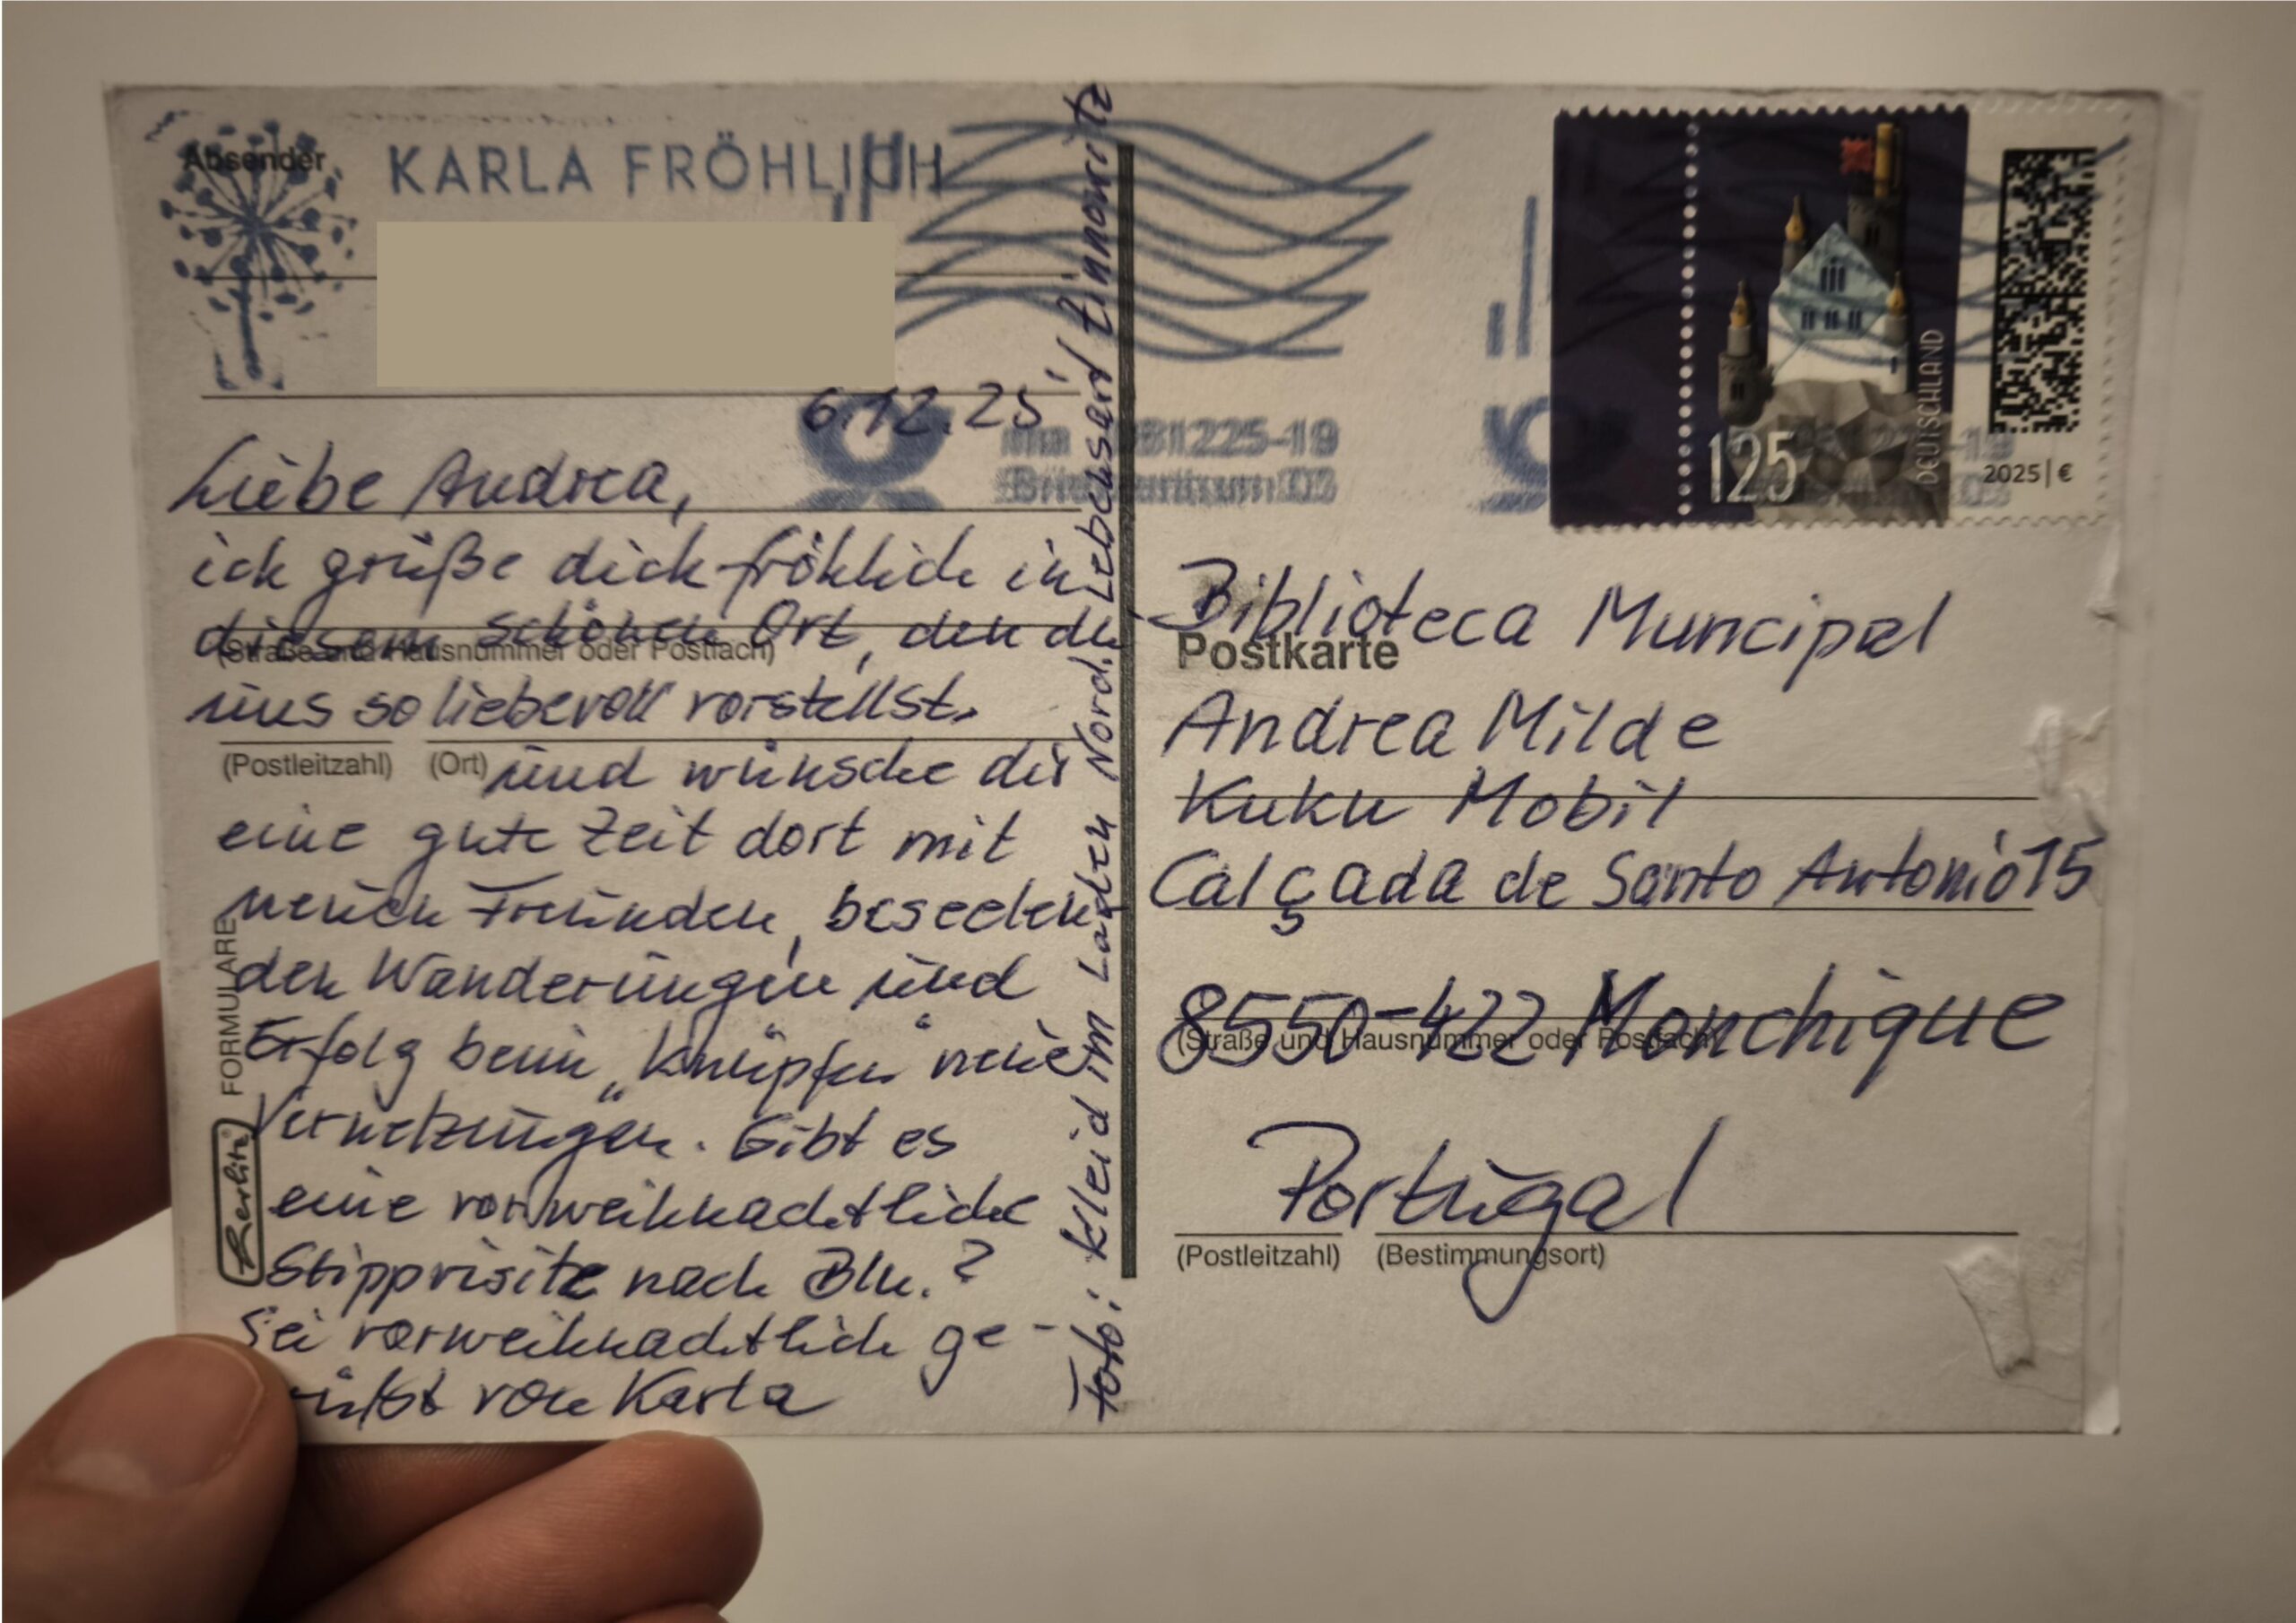 Absender
KARLA FRÖHLICH
6.12.25
Liebe Andrea,
ich grüße dich fröhlich in
diesem schönen Ort, den du
(Straße und Hausnummer oder Postfach)
uns so liebevoll vorstellst.
(Postleitzahl) (Ort)
und wünsche dir
eine gute Zeit dort mit
neuen Freunden, beseelen
den Wanderungen und
Erfolg beim „Knüpfen“ neue
Vernetzungen. Gibt es
eine vorweihnachtliche
Stippvisite nach Bln.?
Sei vorweihnachtlich ge-
rüßt von Karla
FORMULARE
Herlitz
Foto: Kleid im Laden Nord. Lebensart Zinnowitz
081225-19
Briefzentrum 03
125
DEUTSCHLAND
2025 | €
Postkarte
Biblioteca Muncipal
Andrea Milde
Kuku Mobil
Calçada de Santo Antonio 15
8550-422 Monchique
(Straße und Hausnummer oder Postfach)
Portugal
(Postleitzahl) (Bestimmungsort)